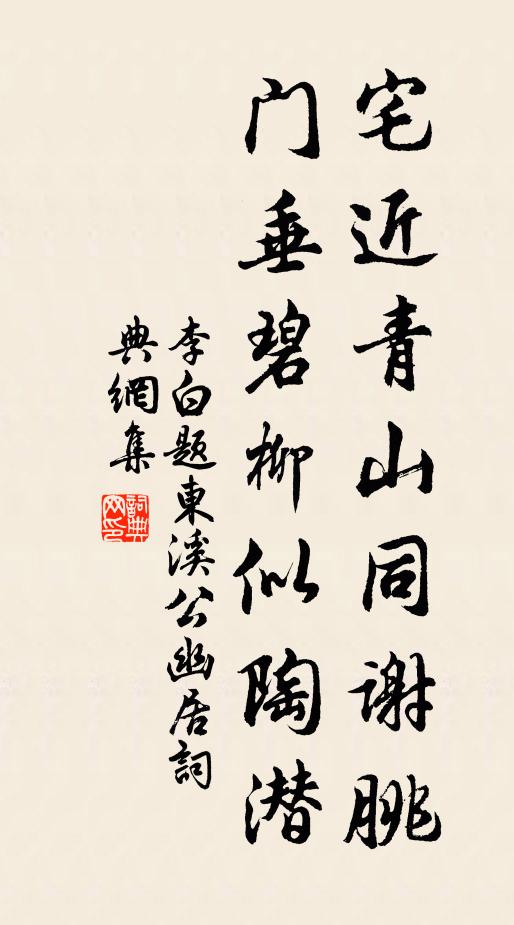 宅近青山同谢朓
门垂碧柳似陶潜
李白题東溪公幽居詞
典網集
詞典网印